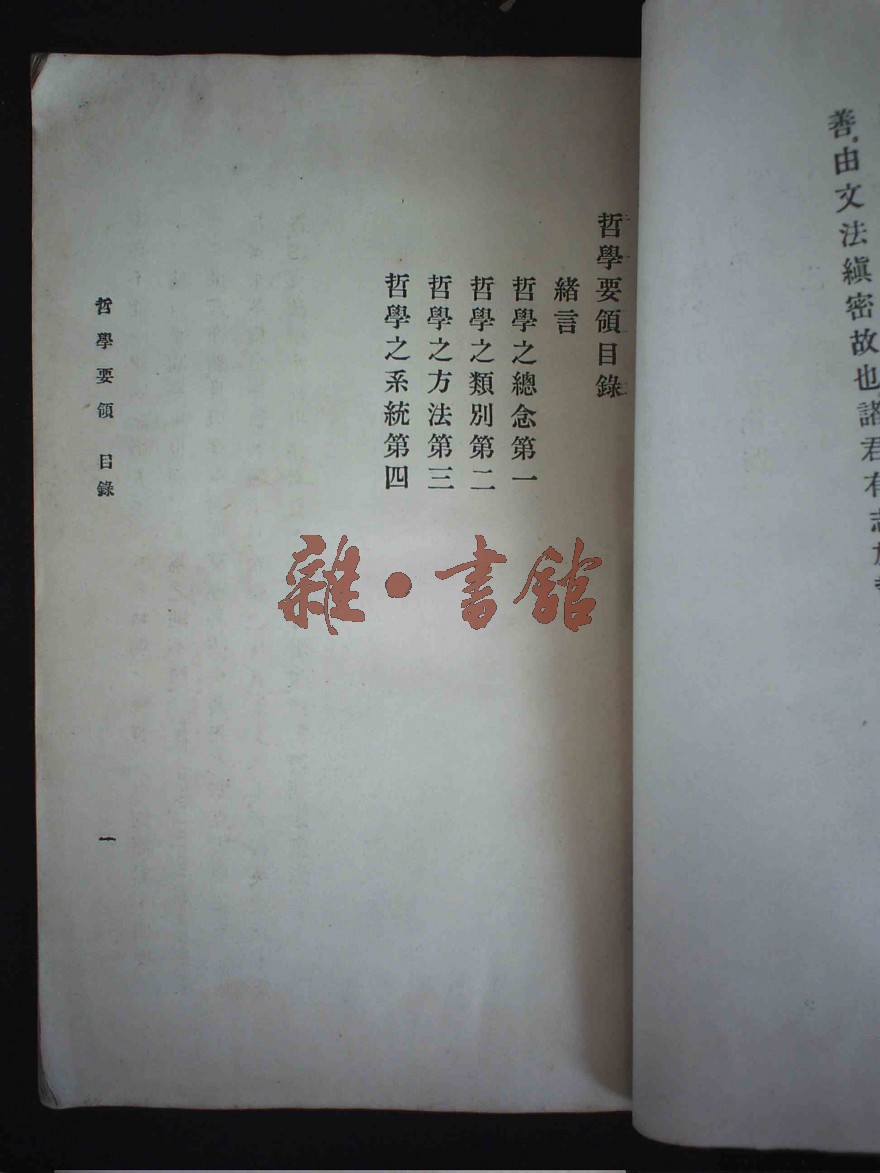 善由文法縝密故也諸君有志
哲學要領目錄
緒言
哲學之總念第一
哲學之類別第二
哲學之方法第三
哲學之系統第四
哲學要領 目錄
一
雜·書館